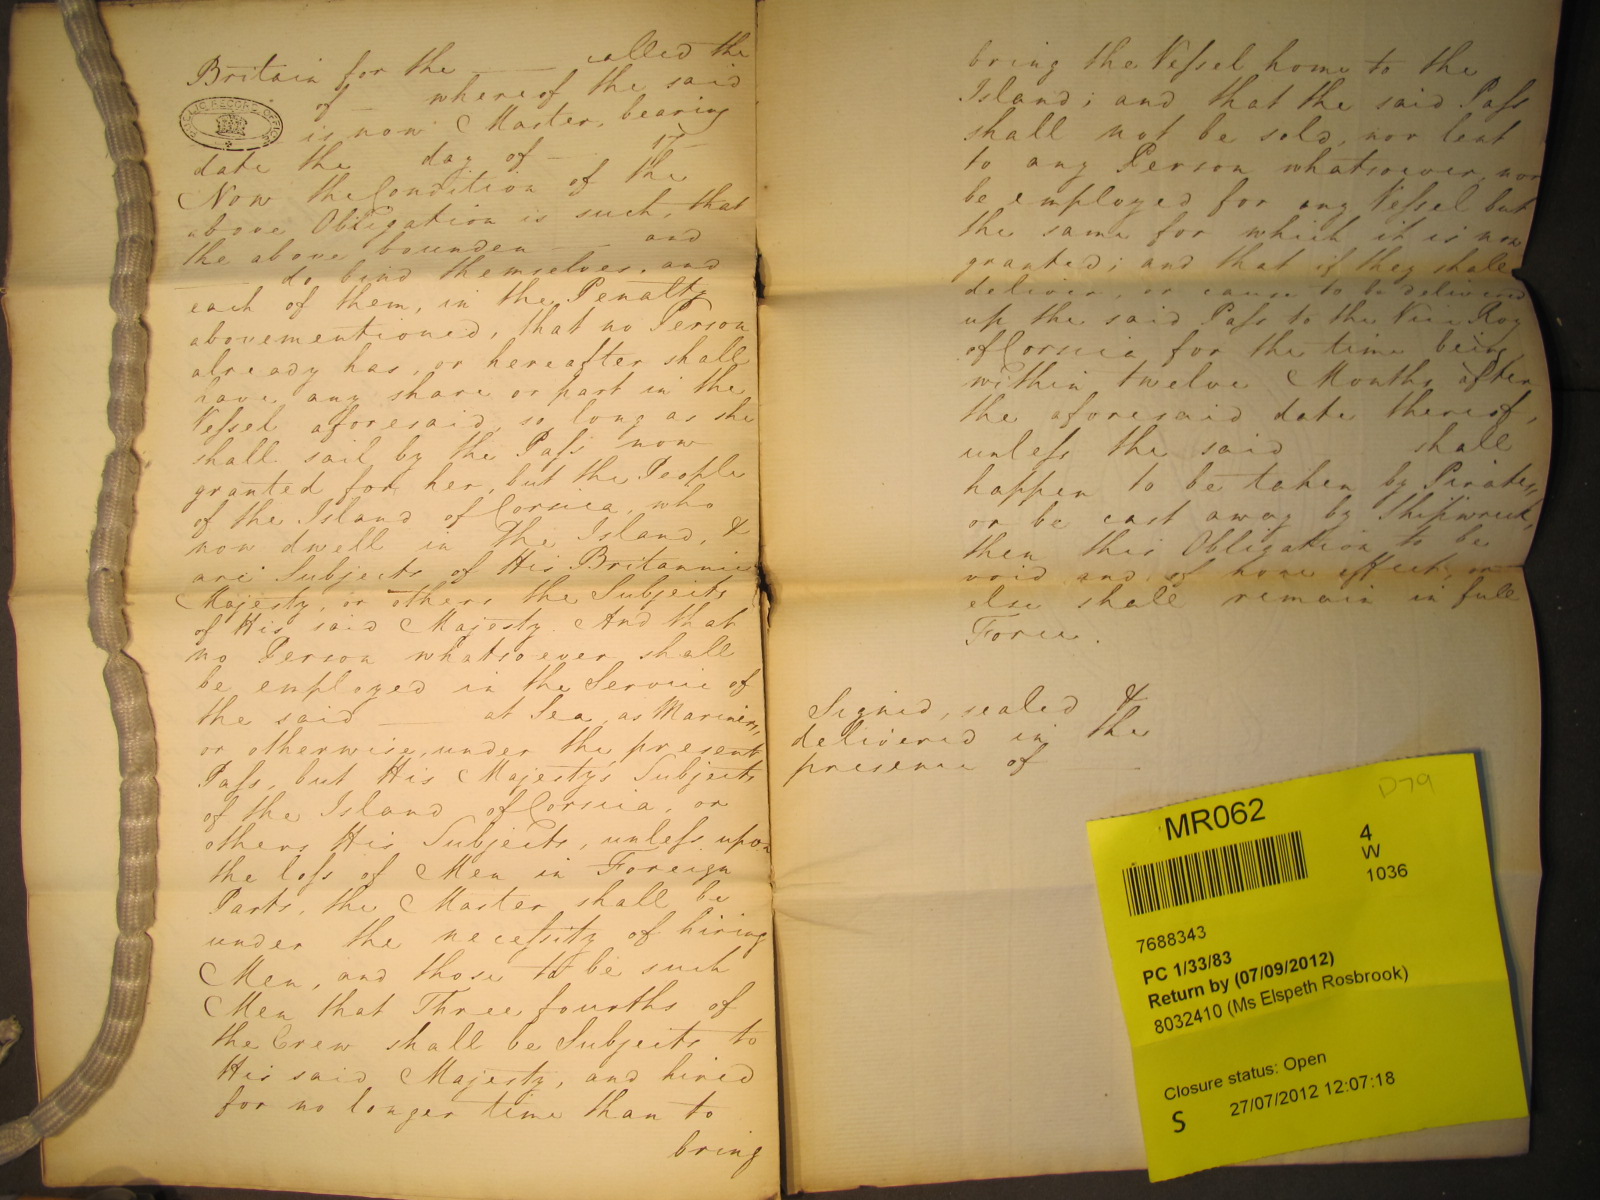 Britain for the ____ called the
of — whereof the said
is now Master, bearing
date the day of — 17—
Now the Condition of the
above Obligation is such, that
the above bounden —— and
—— do bind themselves, and
each of them, in the Penalty
abovementioned, that no Person
already has, or hereafter shall
have, any share or part in the
Vessel aforesaid, so long as she
shall sail by the Pass now
granted for her, but the People
of the Island of Corsica, who
now dwell in the Island, &
are Subjects of His Britannic
Majesty, or others the Subjects
of His said Majesty. And that
no Person whatsoever shall
be employed in the Service of
the said —— at Sea, as Mariners,
or otherwise, under the present
Pass, but His Majesty's Subjects
of the Island of Corsica, or
others His Subjects, unless upon
the loss of Men in Foreign
Parts, the Master shall be
under the necessity of hiring
Men, and those to be such
Men that Three fourths of
the Crew shall be Subjects to
His said Majesty, and hired
for no longer time than to
bring
PUBLIC RECORD OFFICE
bring the Vessel home to the
Island; and that the said Pass
shall not be sold, nor lent
to any Person whatsoever, nor
be employed for any Vessel but
the same for which it is now
granted; and that if they shall
deliver, or cause to be delivered
up the said Pass to the Vice Roy
of Corsica for the time being
within twelve Months after
the aforesaid date thereof,
unless the said shall
happen to be taken by Pirates,
or be cast away by Shipwreck,
then this Obligation to be
void and of none effect, or
else shall remain in full
Force.
Signed, sealed &
delivered in the
presence of ——
D79
MR062
4
W
1036
7688343
PC 1/33/83
Return by (07/09/2012)
8032410 (Ms Elspeth Rosbrook)
Closure status: Open
S 27/07/2012 12:07:18